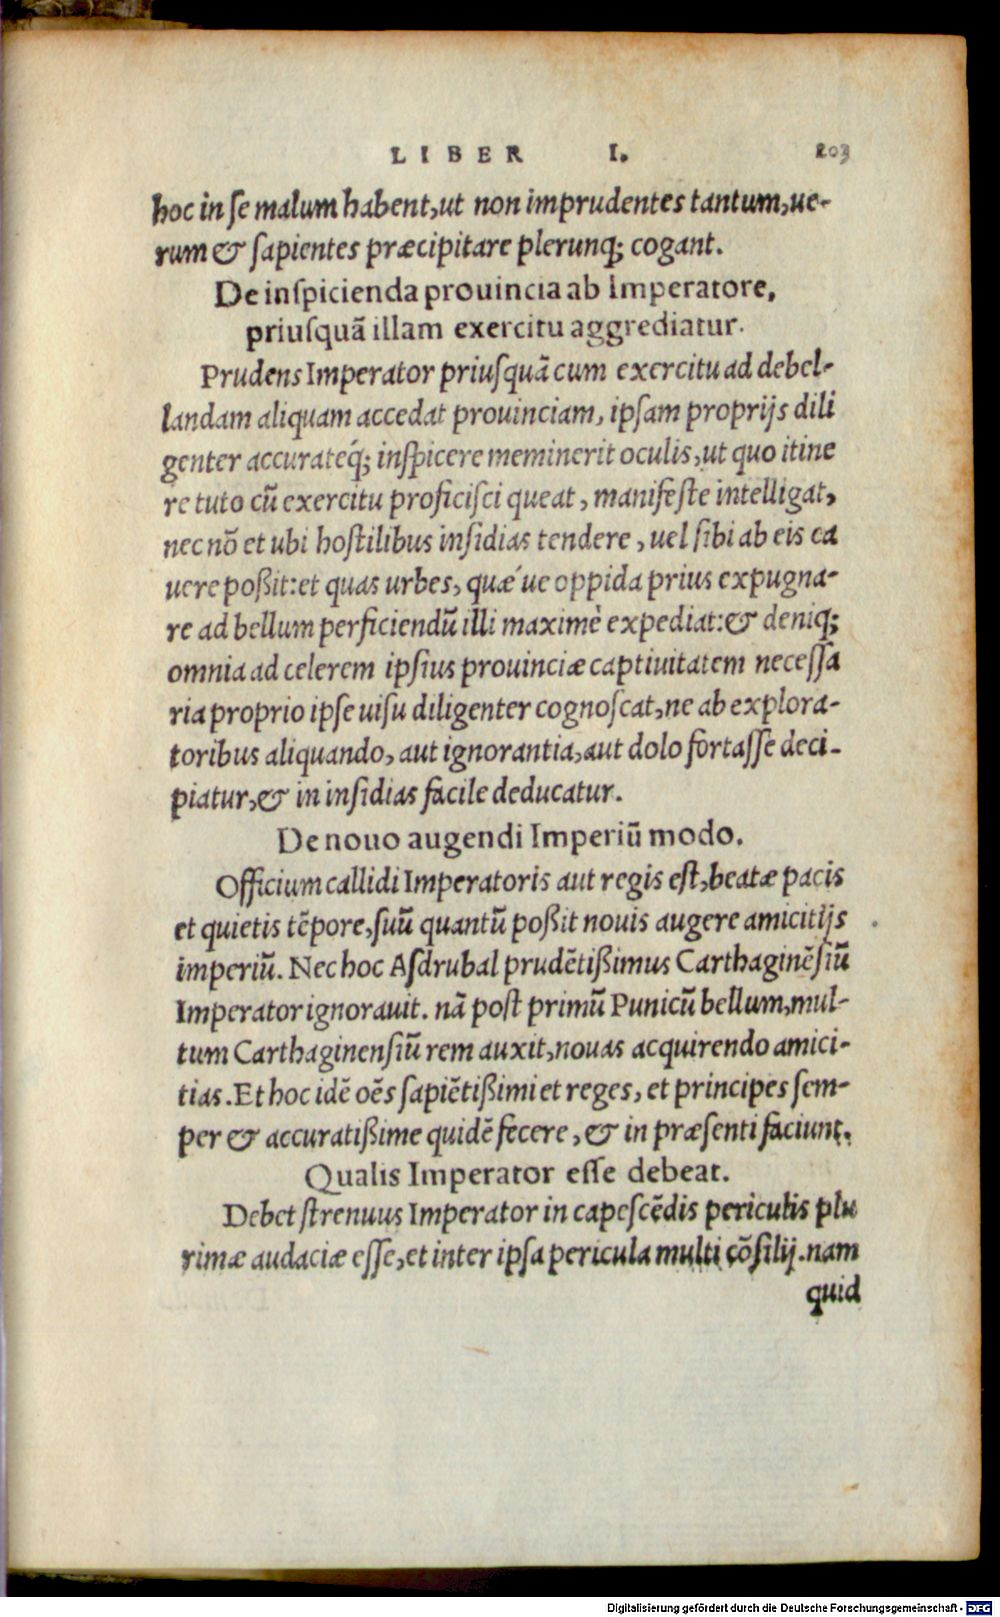 LIBER I. 203
hoc in se malum habent, ut non imprudentes tantum, ue-
rum & sapientes præcipitare plerunq; cogant.
De inspicienda prouincia ab Imperatore,
priusquã illam exercitu aggrediatur.
Prudens Imperator priusquã cum exercitu ad debel-
landam aliquam accedat prouinciam, ipsam proprijs dili
genter accurateq́; inspicere meminerit oculis, ut quo itine
re tuto cũ exercitu proficisci queat, manifeste intelligat,
nec nõ et ubi hostilibus insidias tendere, uel sibi ab eis ca
uere poßit: et quas urbes, quæ´ue oppida prius expugna-
re ad bellum perficiendũ illi maximè expediat: & deniq;
omnia ad celerem ipsius prouinciæ captiuitatem necessa
ria proprio ipse uisu diligenter cognoscat, ne ab explora-
toribus aliquando, aut ignorantia, aut dolo fortasse deci-
piatur, & in insidias facile deducatur.
De nouo augendi Imperiũ modo.
Officium callidi Imperatoris aut regis est, beatæ pacis
et quietis tẽpore, suũ quantũ poßit nouis augere amicitijs
imperiũ. Nec hoc Asdrubal prudẽtißimus Carthaginẽsiũ
Imperator ignorauit. nã post primũ Punicũ bellum, mul-
tum Carthaginensiũ rem auxit, nouas acquirendo amici-
tias. Et hoc idẽ oẽs sapiẽtißimi et reges, et principes sem-
per & accuratißime quidẽ fecere, & in præsenti faciunt.
Qualis Imperator esse debeat.
Debet strenuus Imperator in capescẽdis periculis plu
rimæ audaciæ esse, et inter ipsa pericula multi cõsilij. nam
quid
Digitalisierung gefördert durch die Deutsche Forschungsgemeinschaft - DFG